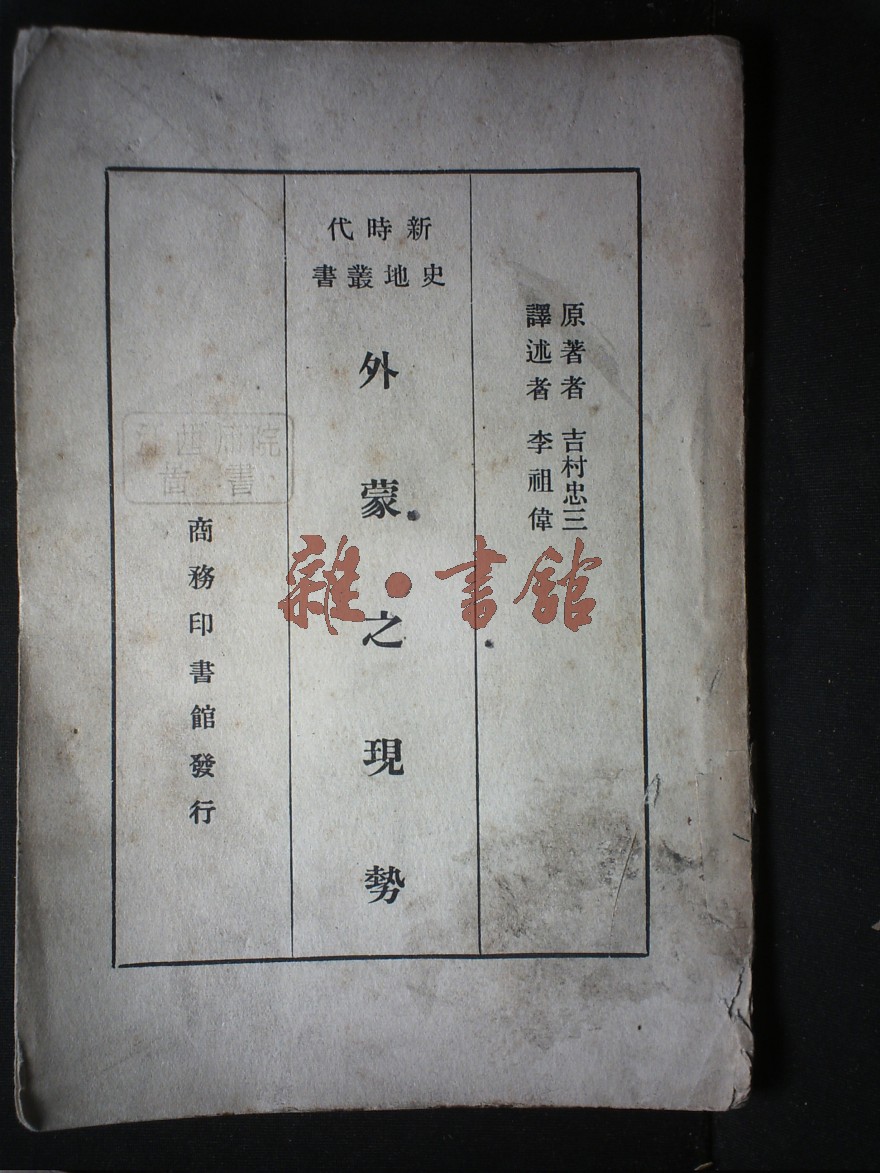 原著者 吉村忠三
譯述者 李祖偉
新時代
史地叢書
外蒙之現勢
商務印書館發行
江西师院
啚書
雜·書館